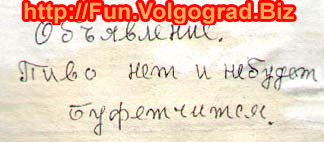 http://Fun.Volgograd.Biz
Объявление.
Пиво нет и небудет
Буфетчится.